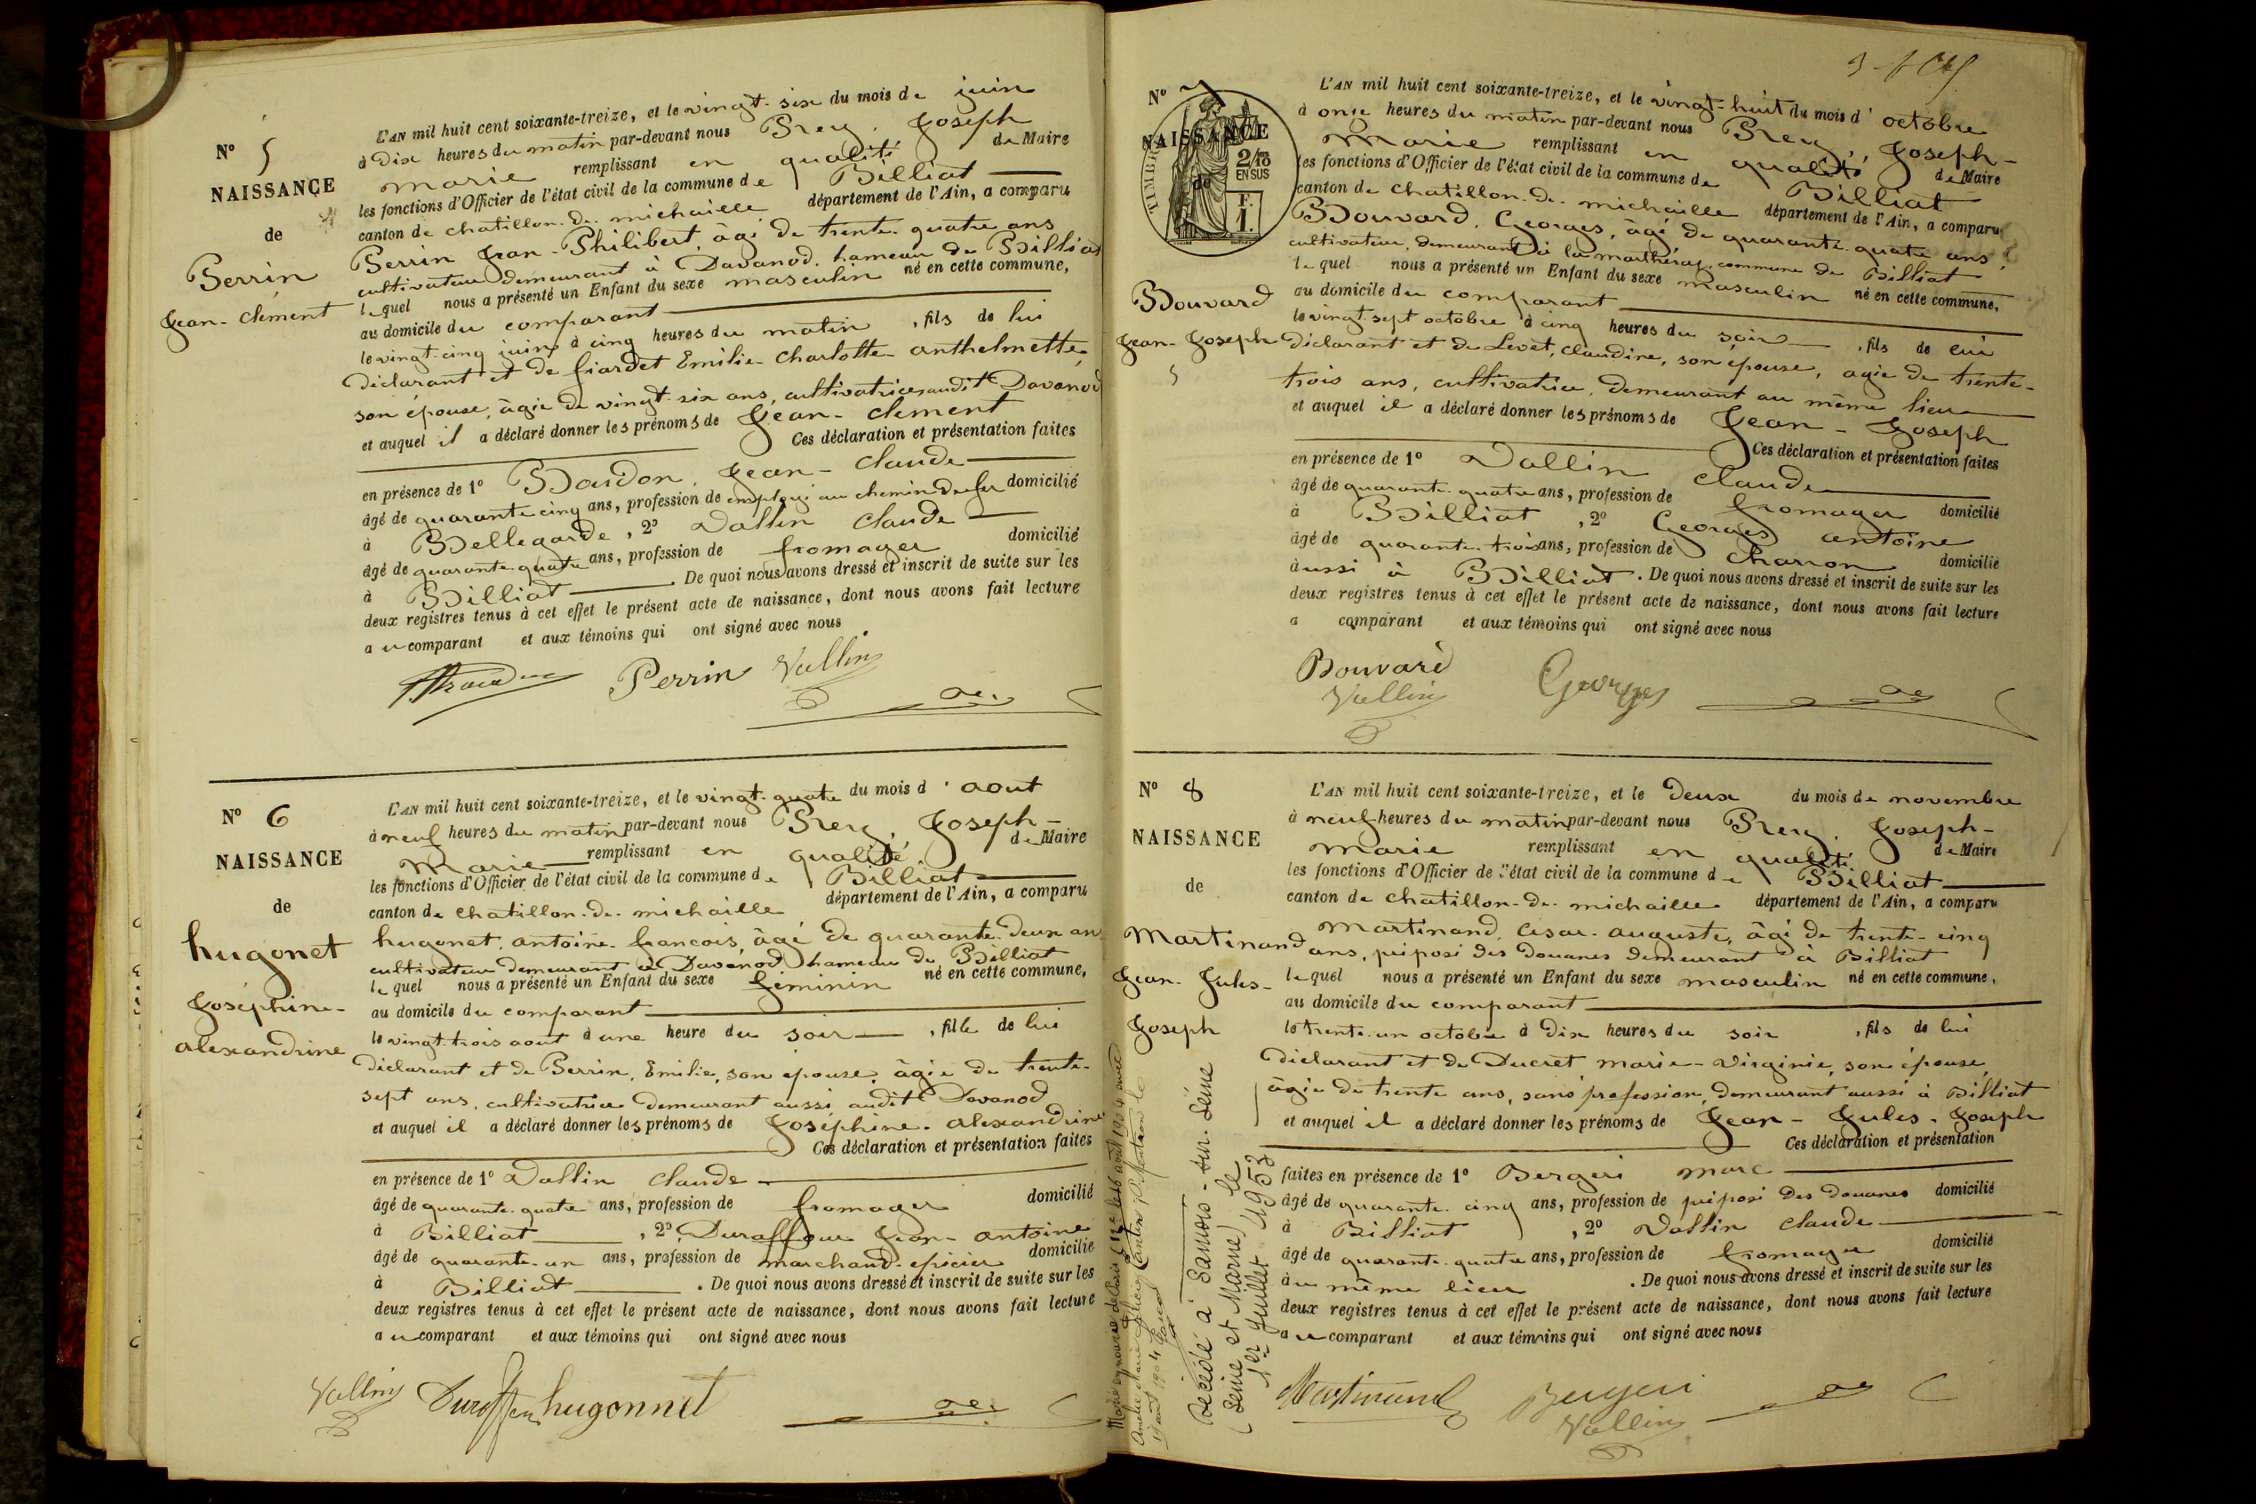 N° 5
NAISSANCE
de
Perrin
Jean-Clément
L'AN mil huit cent soixante-treize, et le vingt-six du mois de juin
à dix heures du matin par-devant nous Prey, Joseph
Marie remplissant en qualité de Maire
les fonctions d'Officier de l'état civil de la commune de Billiat
canton de Chatillon-de-michaille département de l'Ain, a comparu
Perrin Jean-Philibert, âgé de trente-quatre ans
cultivateur demeurant à Davanod, hameau de Billiat
lequel nous a présenté un Enfant du sexe masculin né en cette commune,
au domicile du comparant
le vingt-cinq juin à cinq heures du matin, fils de lui
déclarant et de Emilie-Charlotte-anthelmette,
son épouse, âgée de vingt-six ans, cultivatrice audit Davanod
et auquel il a déclaré donner les prénoms de Jean-Clement
Ces déclaration et présentation faites
en présence de 1° Baudon, Jean-Claude
âgé de quarante cinq ans, profession de employé au chemin de fer domicilié
à Bellegarde, 2° Vallin Claude
âgé de quarante-quatre ans, profession de fromager domicilié
à Billiat. De quoi nous avons dressé et inscrit de suite sur les
deux registres tenus à cet effet le présent acte de naissance, dont nous avons fait lecture
au comparant et aux témoins qui ont signé avec nous
Perrin Vallin
N° 6
NAISSANCE
de
hugonet
Joséphine-
alexandrine
L'AN mil huit cent soixante-treize, et le vingt-quatre du mois d'aout
à neuf heures du matin par-devant nous Prey, Joseph-
Marie remplissant en qualité de Maire
les fonctions d'Officier de l'état civil de la commune de Billiat
canton de Chatillon-de-michaille département de l'Ain, a comparu
hugonet, antoine-francois, âgé de quarante-deux ans
cultivateur demeurant à Davanod hameau de Billiat
lequel nous a présenté un Enfant du sexe féminin né en cette commune,
au domicile du comparant
le vingt-trois aout à une heure du soir, fille de lui
déclarant et de Perrin, Emilie, son épouse, âgée de trente-
sept ans, cultivatrice demeurant aussi audit Davanod
et auquel il a déclaré donner les prénoms de Joséphine-alexandrine
Ces déclaration et présentation faites
en présence de 1° Vallin Claude
âgé de quarante-quatre ans, profession de fromager domicilié
à Billiat, 2° Duraffour Jean-antoine
âgé de quarante-un ans, profession de marchand-épicier domicilié
à Billiat. De quoi nous avons dressé et inscrit de suite sur les
deux registres tenus à cet effet le présent acte de naissance, dont nous avons fait lecture
au comparant et aux témoins qui ont signé avec nous
Vallin Duraffour hugonnet
N° 7
NAISSANCE
de
TIMBRE
2/10
EN SUS
F.
1.
Bouvard
Jean-Joseph
L'AN mil huit cent soixante-treize, et le vingt-huit du mois d'octobre
à onze heures du matin par-devant nous Prey, Joseph-
Marie remplissant en qualité de Maire
les fonctions d'Officier de l'état civil de la commune de Billiat
canton de Chatillon-de-michaille département de l'Ain, a comparu
Bouvard, Georges, âgé de quarante-quatre ans,
cultivateur, demeurant à commune de Billiat
lequel nous a présenté un Enfant du sexe masculin né en cette commune,
au domicile du comparant
le vingt-sept octobre à cinq heures du soir, fils de lui
déclarant et de Levet, Claudine, son épouse, âgée de trente-
trois ans, cultivatrice, demeurant au même lieu
et auquel il a déclaré donner les prénoms de Jean-Joseph
Ces déclaration et présentation faites
en présence de 1° Vallin Claude
âgé de quarante-quatre ans, profession de fromager domicilié
à Billiat, 2° Georges antoine
âgé de quarante-trois ans, profession de charron domicilié
aussi à Billiat. De quoi nous avons dressé et inscrit de suite sur les
deux registres tenus à cet effet le présent acte de naissance, dont nous avons fait lecture
a comparant et aux témoins qui ont signé avec nous
Bouvard Georges
Vallin
N° 8
NAISSANCE
de
Martinand
Jean-Jules-
Joseph
L'AN mil huit cent soixante-treize, et le deux du mois de novembre
à neuf heures du matin par-devant nous Prey, Joseph-
marie remplissant en qualité de Maire
les fonctions d'Officier de l'état civil de la commune de Billiat
canton de Chatillon-de-michaille département de l'Ain, a comparu
Martinand, César-auguste, âgé de trente-cinq
ans, préposé des Douanes demeurant à Billiat
lequel nous a présenté un Enfant du sexe masculin né en cette commune,
au domicile du comparant
le trente-un octobre à dix heures du soir, fils de lui
déclarant et de Ducret, marie-Virginie, son épouse,
âgée de trente ans, sans profession, demeurant aussi à Billiat
et auquel il a déclaré donner les prénoms de Jean-Jules-Joseph
Ces déclaration et présentation
faites en présence de 1° Bergeri marc
âgé de quarante-cinq ans, profession de préposé des douanes domicilié
à Billiat, 2° Vallin Claude
âgé de quarante-quatre ans, profession de fromager domicilié
au même lieu. De quoi nous avons dressé et inscrit de suite sur les
deux registres tenus à cet effet le présent acte de naissance, dont nous avons fait lecture
au comparant et aux témoins qui ont signé avec nous
Martinand Bergeri
Vallin
Décédé à Samois-sur-Seine
(Seine et Marne) le
1er Juillet 1953